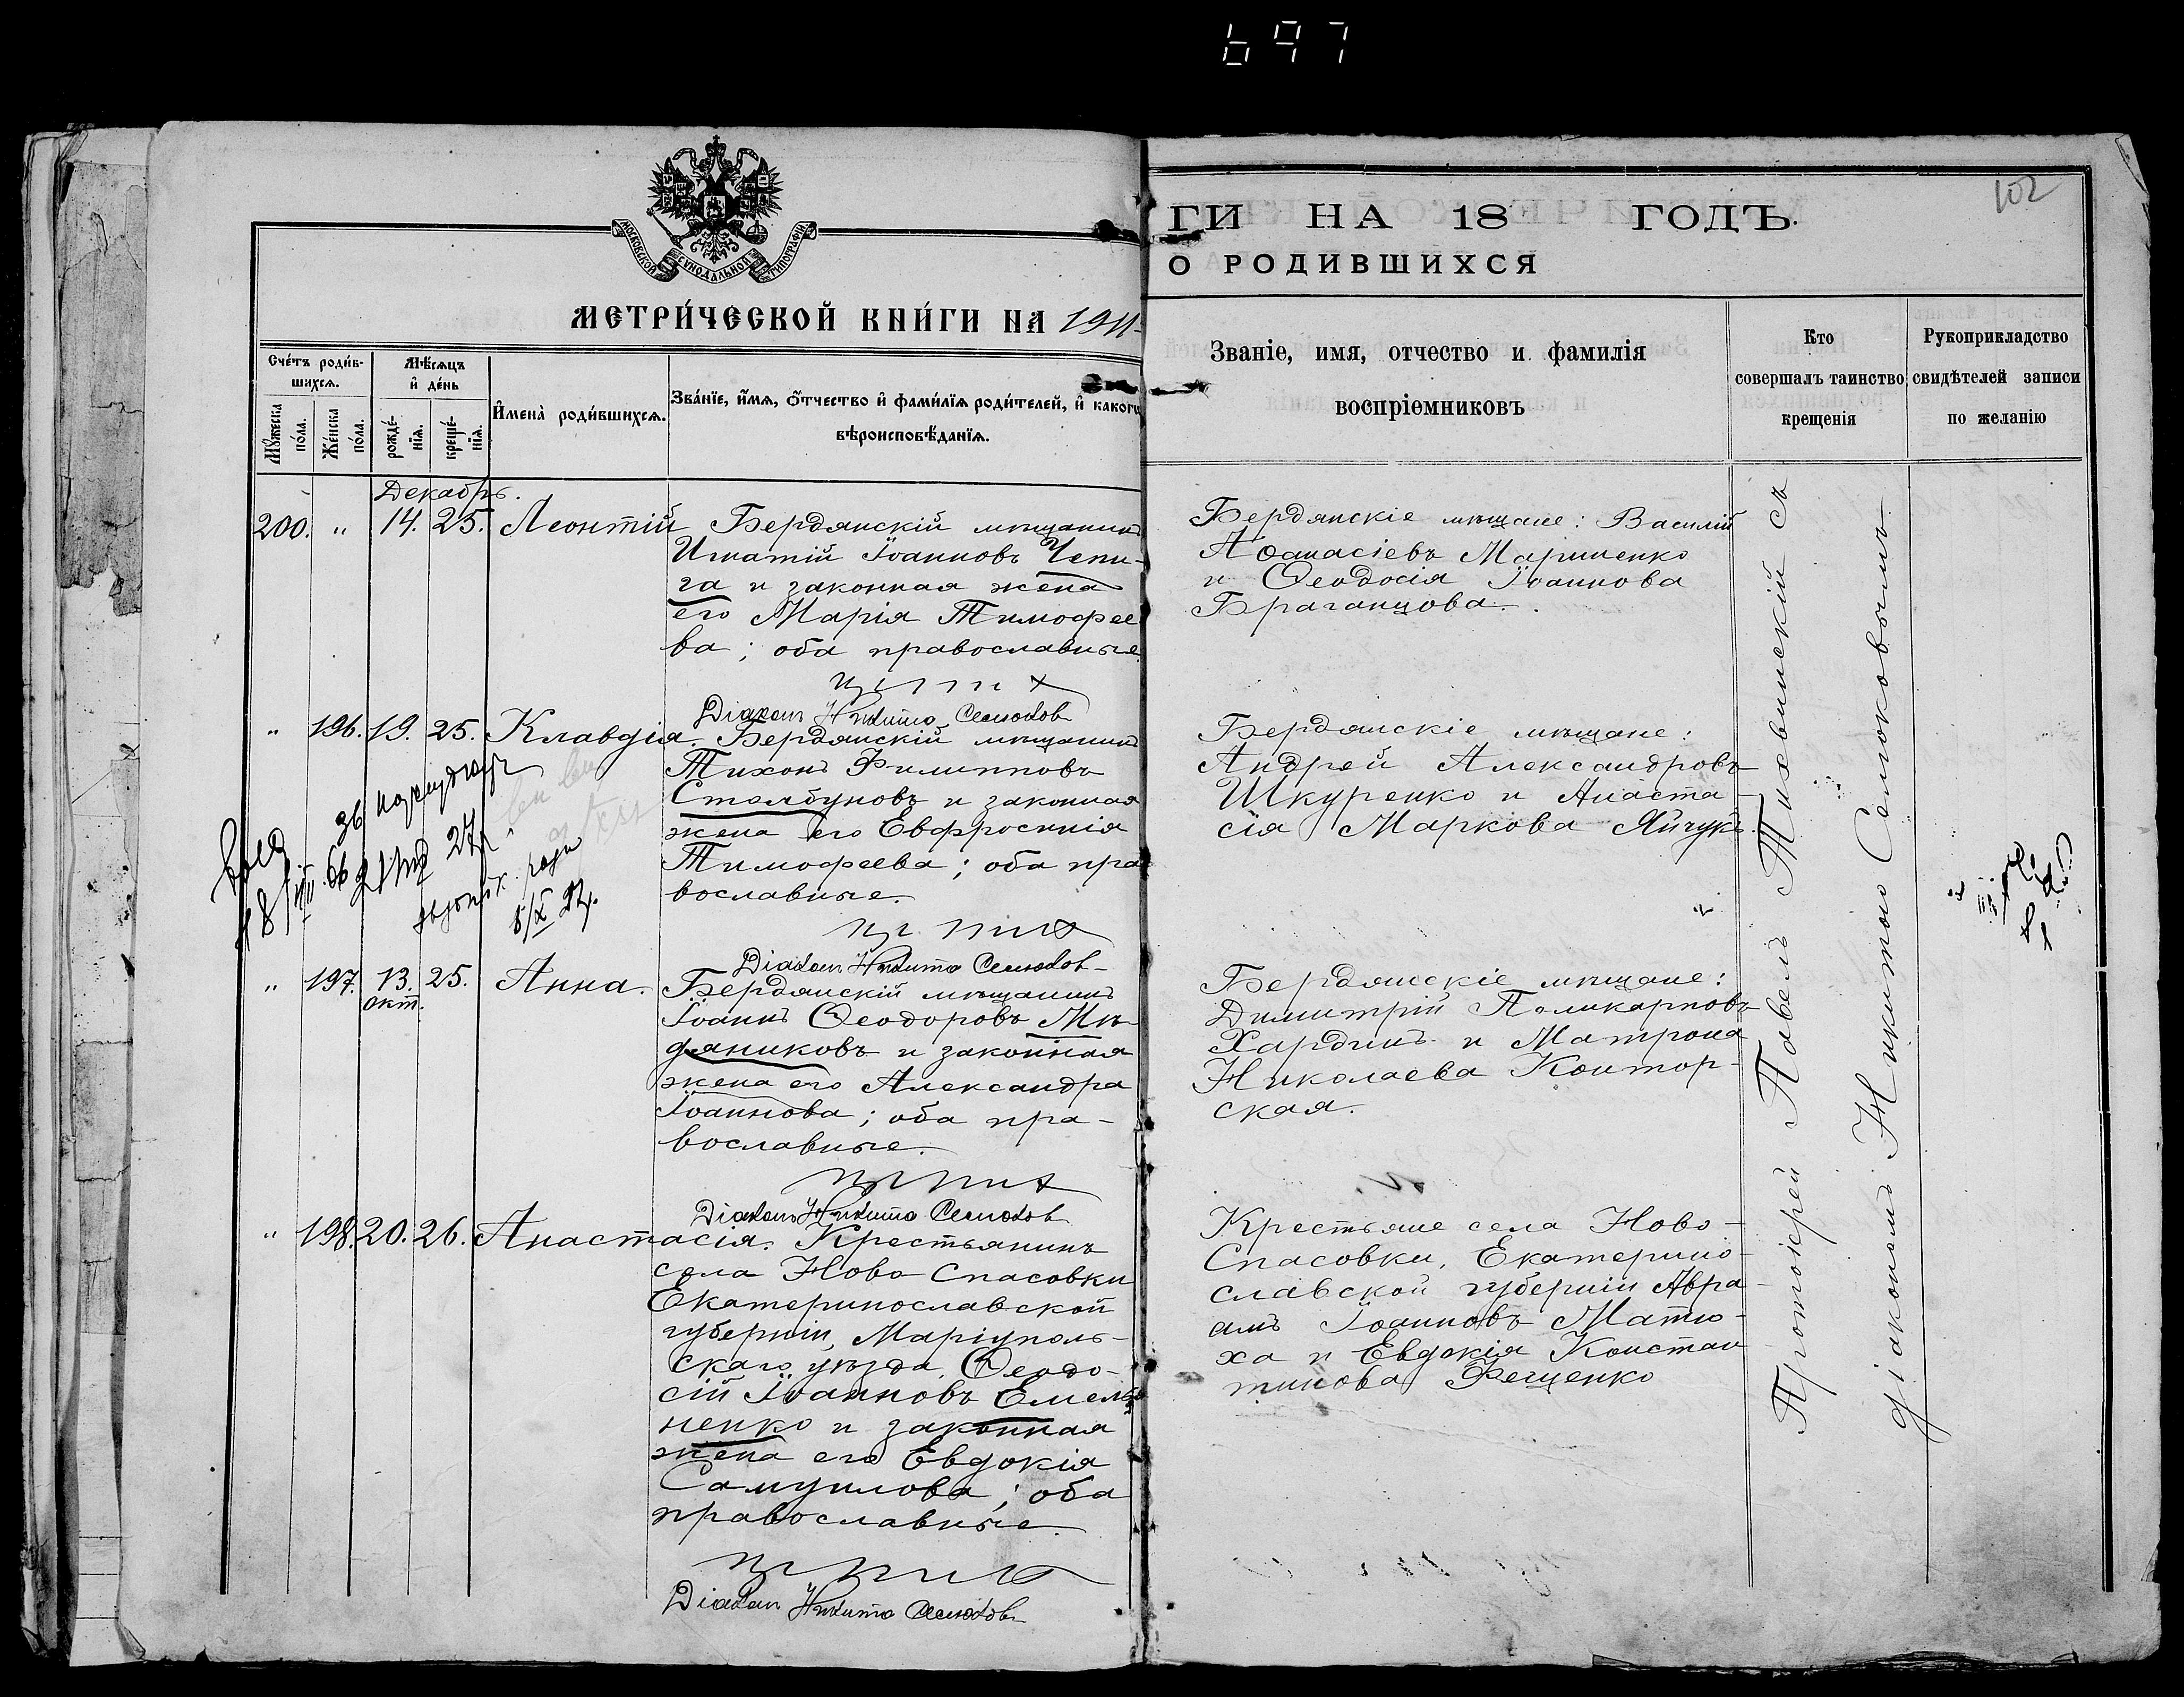 697
102
МОСКОВСКОЙ СѴНОДАЛЬНОЙ ТИПОГРАФІИ
МЕТРИ́ЧЕСКОЙ КНИ́ГИ НА 1911
ГИ НА 18 ГОДЪ.
О РОДИВШИХСЯ
Сче́тъ роди́в-
шихсѧ.
Мꙋ́жеска
по́ла.
Же́нска
по́ла.
Мѣ́сѧцъ
и҆ де́нь
рожде́-
нїѧ.
креще́-
нїѧ.
И҆мена̀ роди́вшихсѧ.
Зва́нїе, и҆́мѧ, ѻ҆́тчество и҆ фами́лїѧ роди́телей, и҆ како́гѡ
вѣроисповѣ́данїѧ.
Званіе, имя, отчество и фамилія
воспріемниковъ
Кто
совершалъ таинство
крещенія
Рукоприкладство
свидѣтелей записи
по желанію
Декабрь.
200. " 14. 25. Леонтій
Бердянскій мѣщанинъ
Игнатій Іоанновъ Чепи-
га и законная жена
его Марія Тимофее
ва; оба православные
Діаконъ Никита Семюков
Бердянскіе мѣщане: Василій
Аѳанасіевъ Мариненко
и Ѳеодосія Іоаннова
Браганцова.
" 196. 19. 25. Клавдія.
Бердянскій мѣщанинъ
Тихонъ Филипповъ
Столбуновъ и законная
жена его Евфросинія
Тимофеева; оба пра
вославные.
Діаконъ Никита Семюков
Бердянскіе мѣщане:
Андрей Александровъ
Шкуренко и Анаста-
сія Маркова Яйчукъ.
" 197. 13. 25. Анна.
окт.
Бердянскій мѣщанинъ
Іоаннъ Ѳеодоровъ Мѣ-
дяниковъ и законная
жена его Александра
Іоаннова; оба пра-
вославные.
Діаконъ Никита Семюков
Бердянскіе мѣщане:
Димитрій Поликарповъ
Хардинъ и Матрона
Николаева Контор-
ская.
" 198. 20. 26. Анастасія.
Крестьянинъ
села Ново Спасовки
Екатеринославской
губерніи, Маріуполь-
скаго уѣзда, Ѳеодо-
сій Іоанновъ Емелья
ненко и законная
жена его Евдокія
Самуилова; оба
православные.
Діаконъ Никита Семюков
Крестьяне села Ново-
Спасовки, Екатерино-
славской губерніи Авра
амъ Іоанновъ Матю-
ха и Евдокія Констан
тинова Фещенко
Протоіерей Павелъ Тихвинскій съ
діакономъ Никитою Семюковымъ